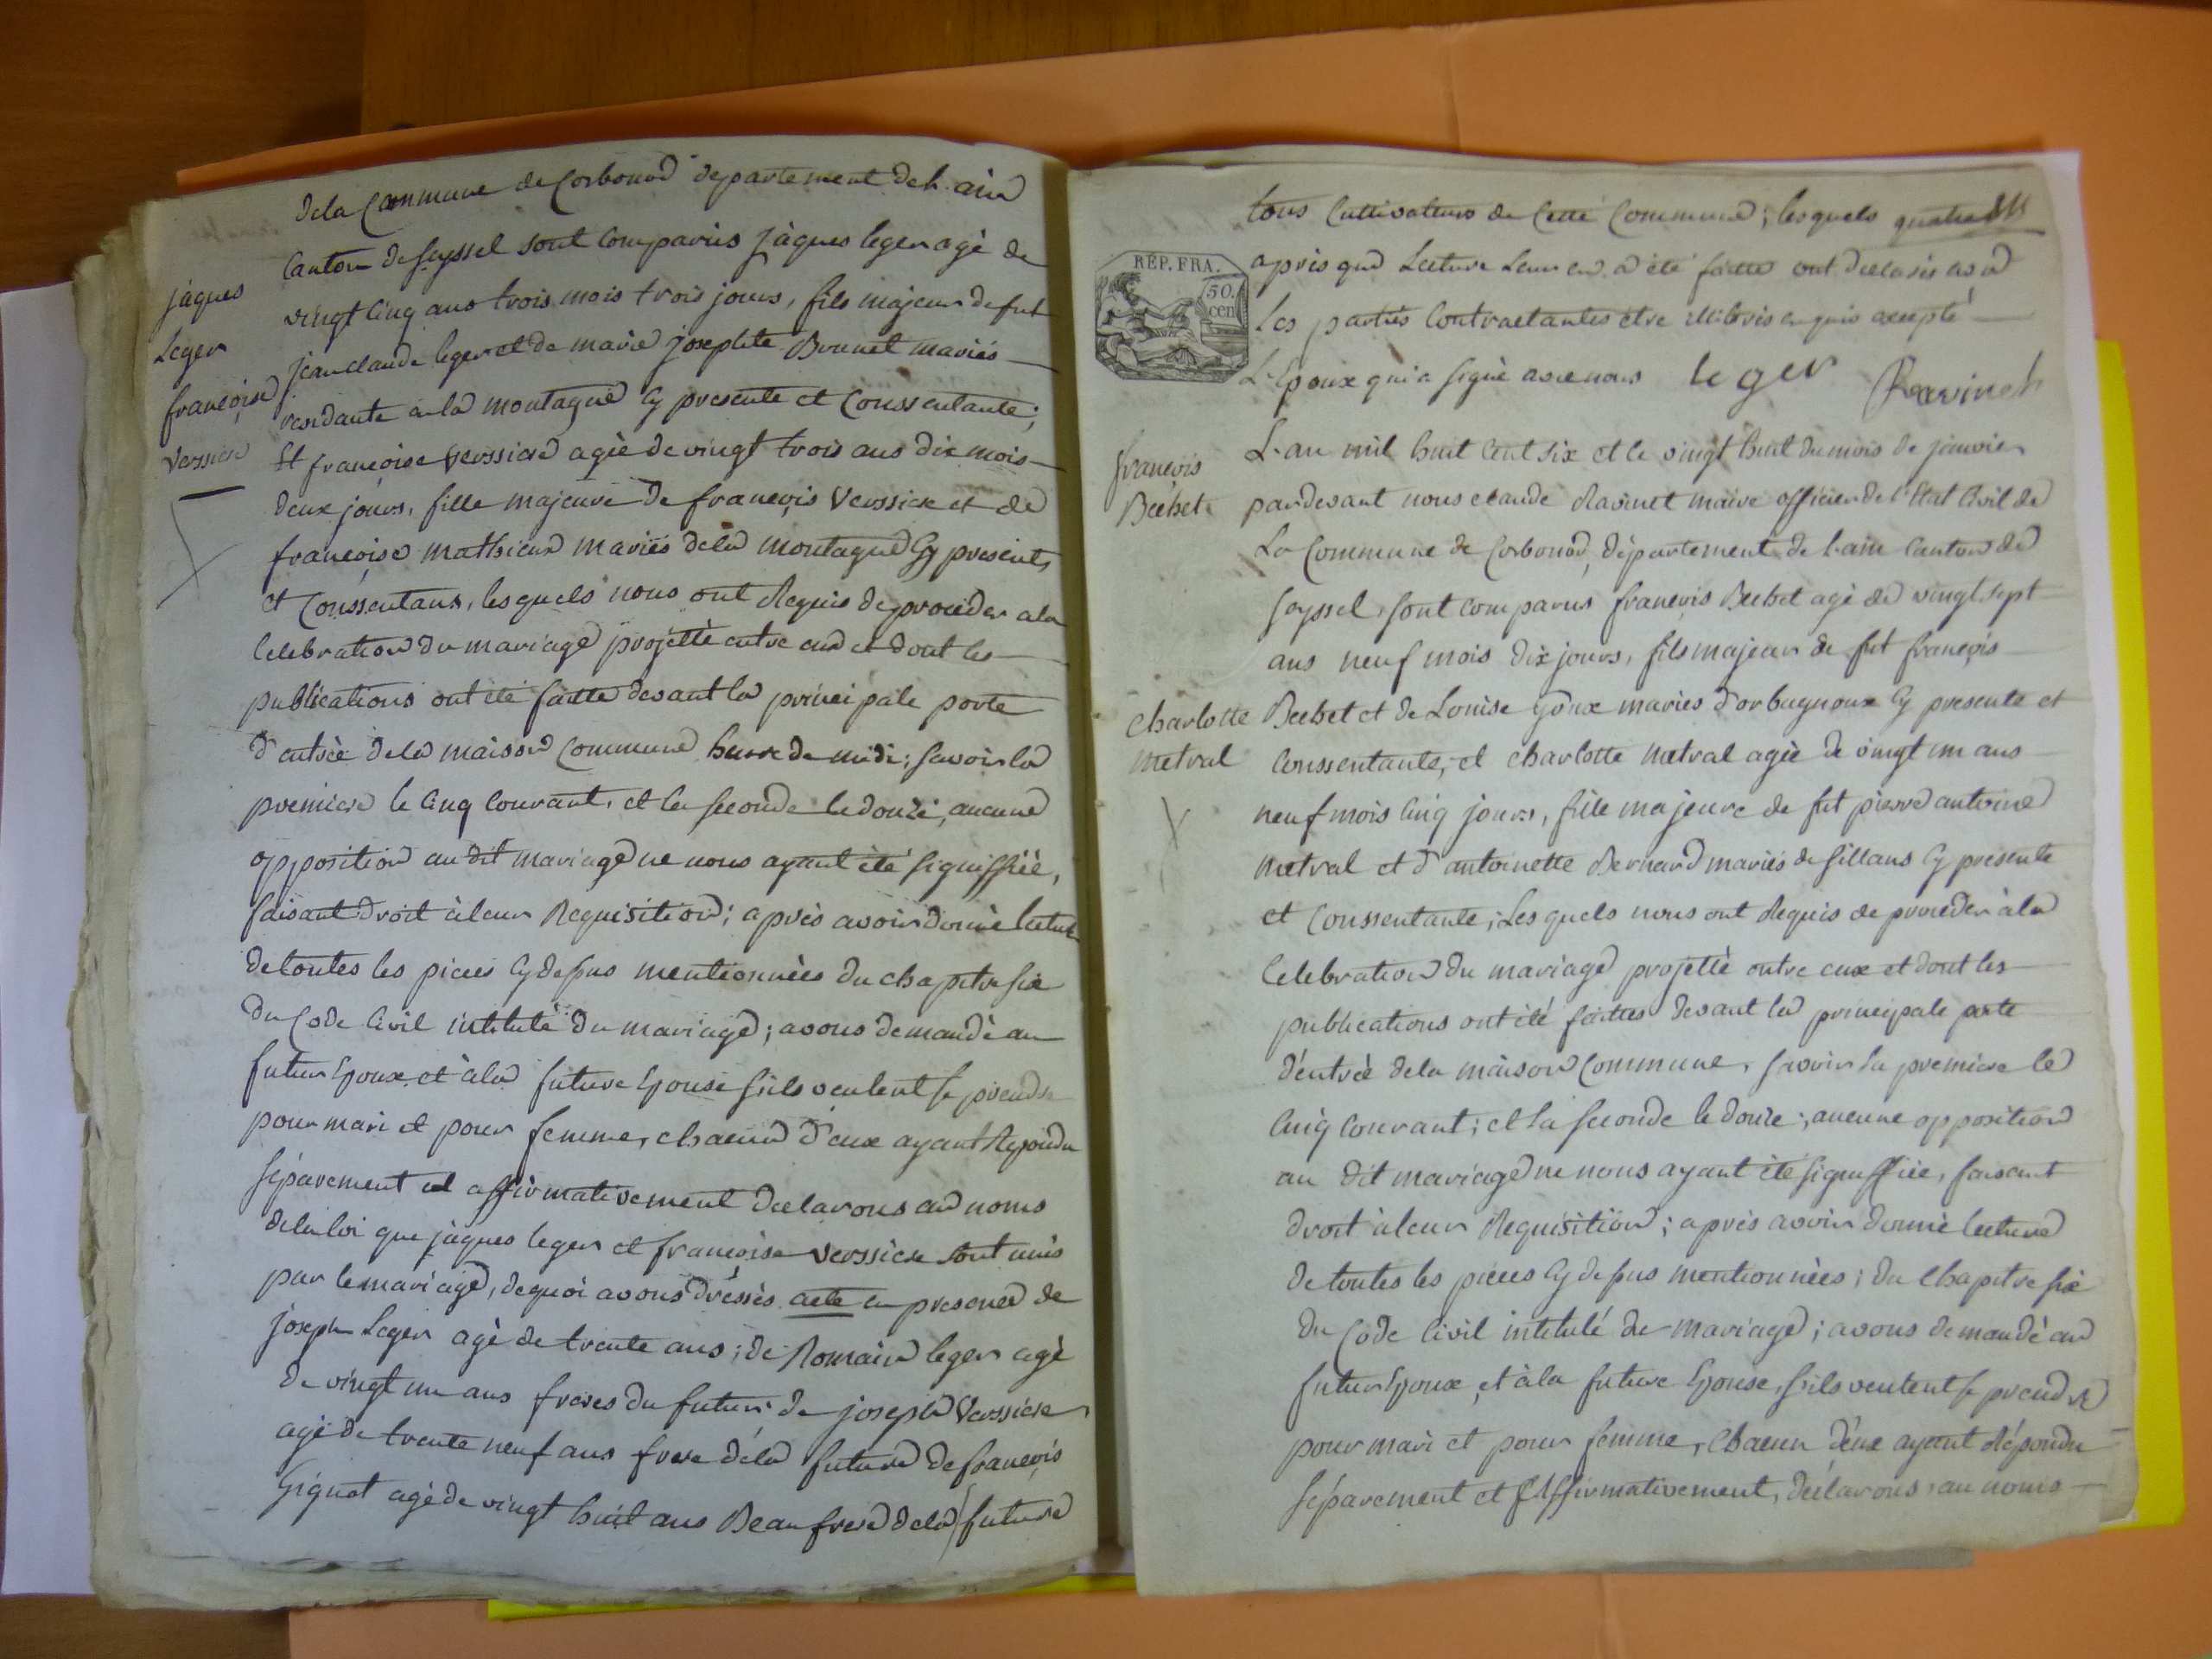 dela Commune de Corbonod departement de l'ain
Canton de seyssel sont comparüs jàques leger agè de
vingt cinq ans trois mois trois jours, fils majeur de fut
jean claude leger et de marie josephte Brunet mariés
residante à la montagne Cy presente et Conssentante;
Et françoise verssiere agèe de vingt trois ans dix mois
deux joùrs, fille majeure de françois verssiere et de
françoise mathieu mariés de la montagne Cy presents
et Conssentans, les quels nous ont Requis de proceder a la
Celebration du mariage projettè entre eux et dont les
publications ont été faitte devant la principale porte
d'entrèe dela maison Commune heure de midi; savoir la
premiere le Cinq Courant, et la seconde le douze, aucune
opposition au dit mariage ne nous ayant été signiffièe,
faisant droit à leur Requisition; après avoir donnè lecture
de toutes les pieces Cy dessus mentionnèes du chapitre six
du Code Civil intitulé du mariage; avons demandè au
futur Epoux et à la future Epouse s'ils veulent se prendre
pour mari et pour femme, chacun d'eux ayant Repondu
séparement et affirmativement declarons au noms
dela loi que jàques leger et françoise verssiere sont unis
par le mariage, de quoi avons dressès acte en presence de
joseph Leger agè de trente ans; de Romain leger agè
de vingt un ans freres du futur; de joseph verssiere
agè de trente neuf ans frere dela future de françois
Gignot agè de vingt huit ans Beau frere dela future
jàques
Leger
françoise
verssiere
tous Cultivateurs de Cette Commune; les quels quatre
après que Lecture Leur en a été faitte ont declarés avec
Les partiès Contractantes être illitèris en quis excepté
L'Epoux qui a signè avec nous leger Ravinet
REP. FRA.
50.
cen
L'an mil huit Cent six et le vingt huit du mois de janvier
pardevant nous claude Ravinet maire officier de l'Etat Civil de
La Commune de Corbonod, département de l'ain Canton de
seyssel, sont comparus françois Bechet agè de vingt sept
ans neuf mois dix jours, fils majeur de fut françois
Bechet et de Louise Goux mariés d'orbagnoux Cy presente et
Conssentante, et charlotte metral agèe de vingt un ans
neuf mois Cinq jours, fille majeure de fut pierre antoine
metral et d'antoinette Bernard mariés de sillans Cy presente
et Conssentante; Les quels nous ont Requis de proceder à la
Celebration du mariage projettè entre eux et dont les
publications ont été faittes devant la principale porte
d'entrèe dela maison Commune, savoir la premiere le
Cinq Courant; et la seconde le douze; aucune opposition
au dit mariage ne nous ayant été signiffièe, faisant
droit à leur Requisition; après avoir donnè lecture
de toutes les pieces Cy dessus mentionnèes; du Chapitre six
du Code Civil intitulé du mariage; avons demandè au
futur Epoux, et à la future Epouse, s'ils veulent se prendre
pour mari et pour femme, Chacun d'eux ayant Répondu
séparement et affirmativement, déclarons, au noms
françois
Bechet
charlotte
metral